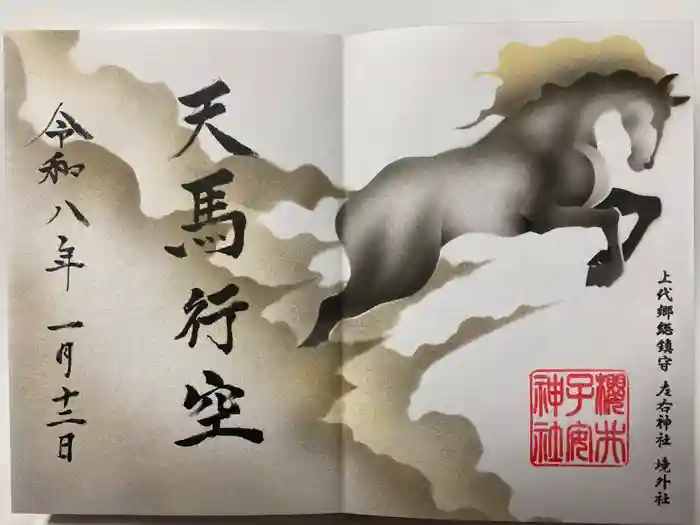 上代郷総鎮守 左右神社 境外社
櫻井
子安
神社
天馬行空
令和八年 一月十二日